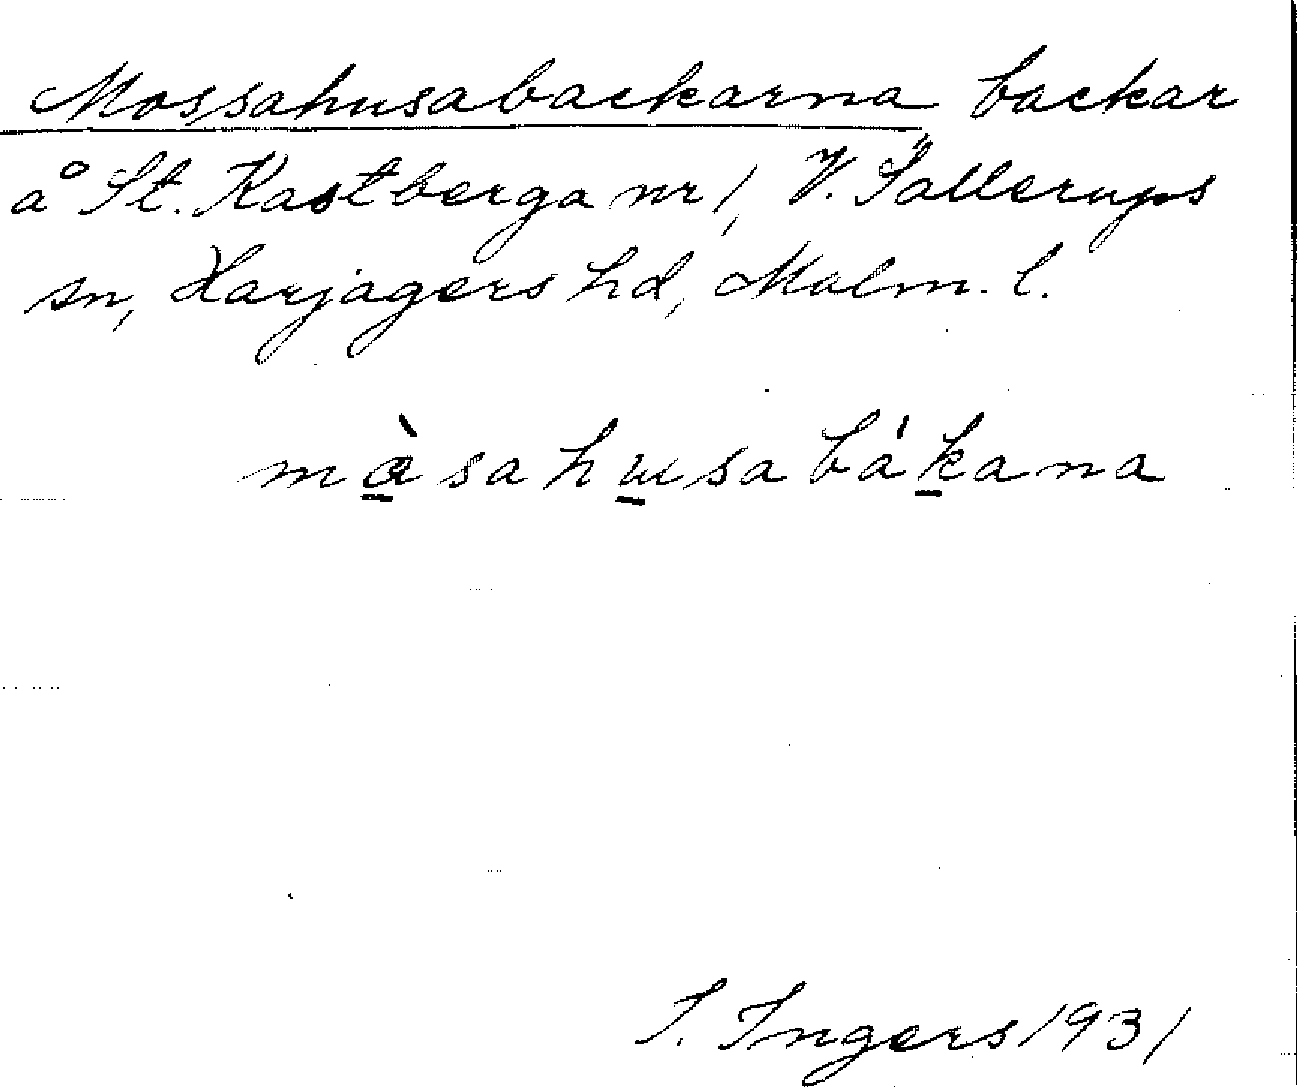 Mossahusabackarna backar
å St. Kastberga nr 1, V. Sallerups
sn, Harjagers hd, Malm. l.
màsahusabákana
I. Ingers 1931